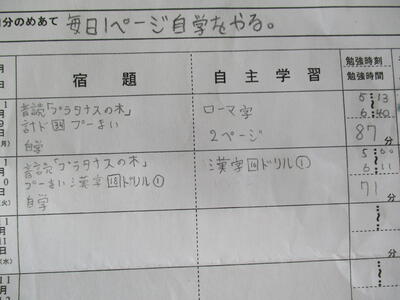 自分のめあて 毎日1ページ自学をやる。
月
日
宿題
自主学習
勉強時刻
勉強時間
1
月
9
日
(月)
音読「プラタナスの木」
計ド プーまい
自学
ローマ字
2ページ
5:13
6:40
87分
1
月
10
日
(火)
音読「プラタナスの木」
プーまい 漢字18ドリル①
自学
漢字 ドリル①
5:00
6:11
71分
11
月
11
日
(水)
11
月